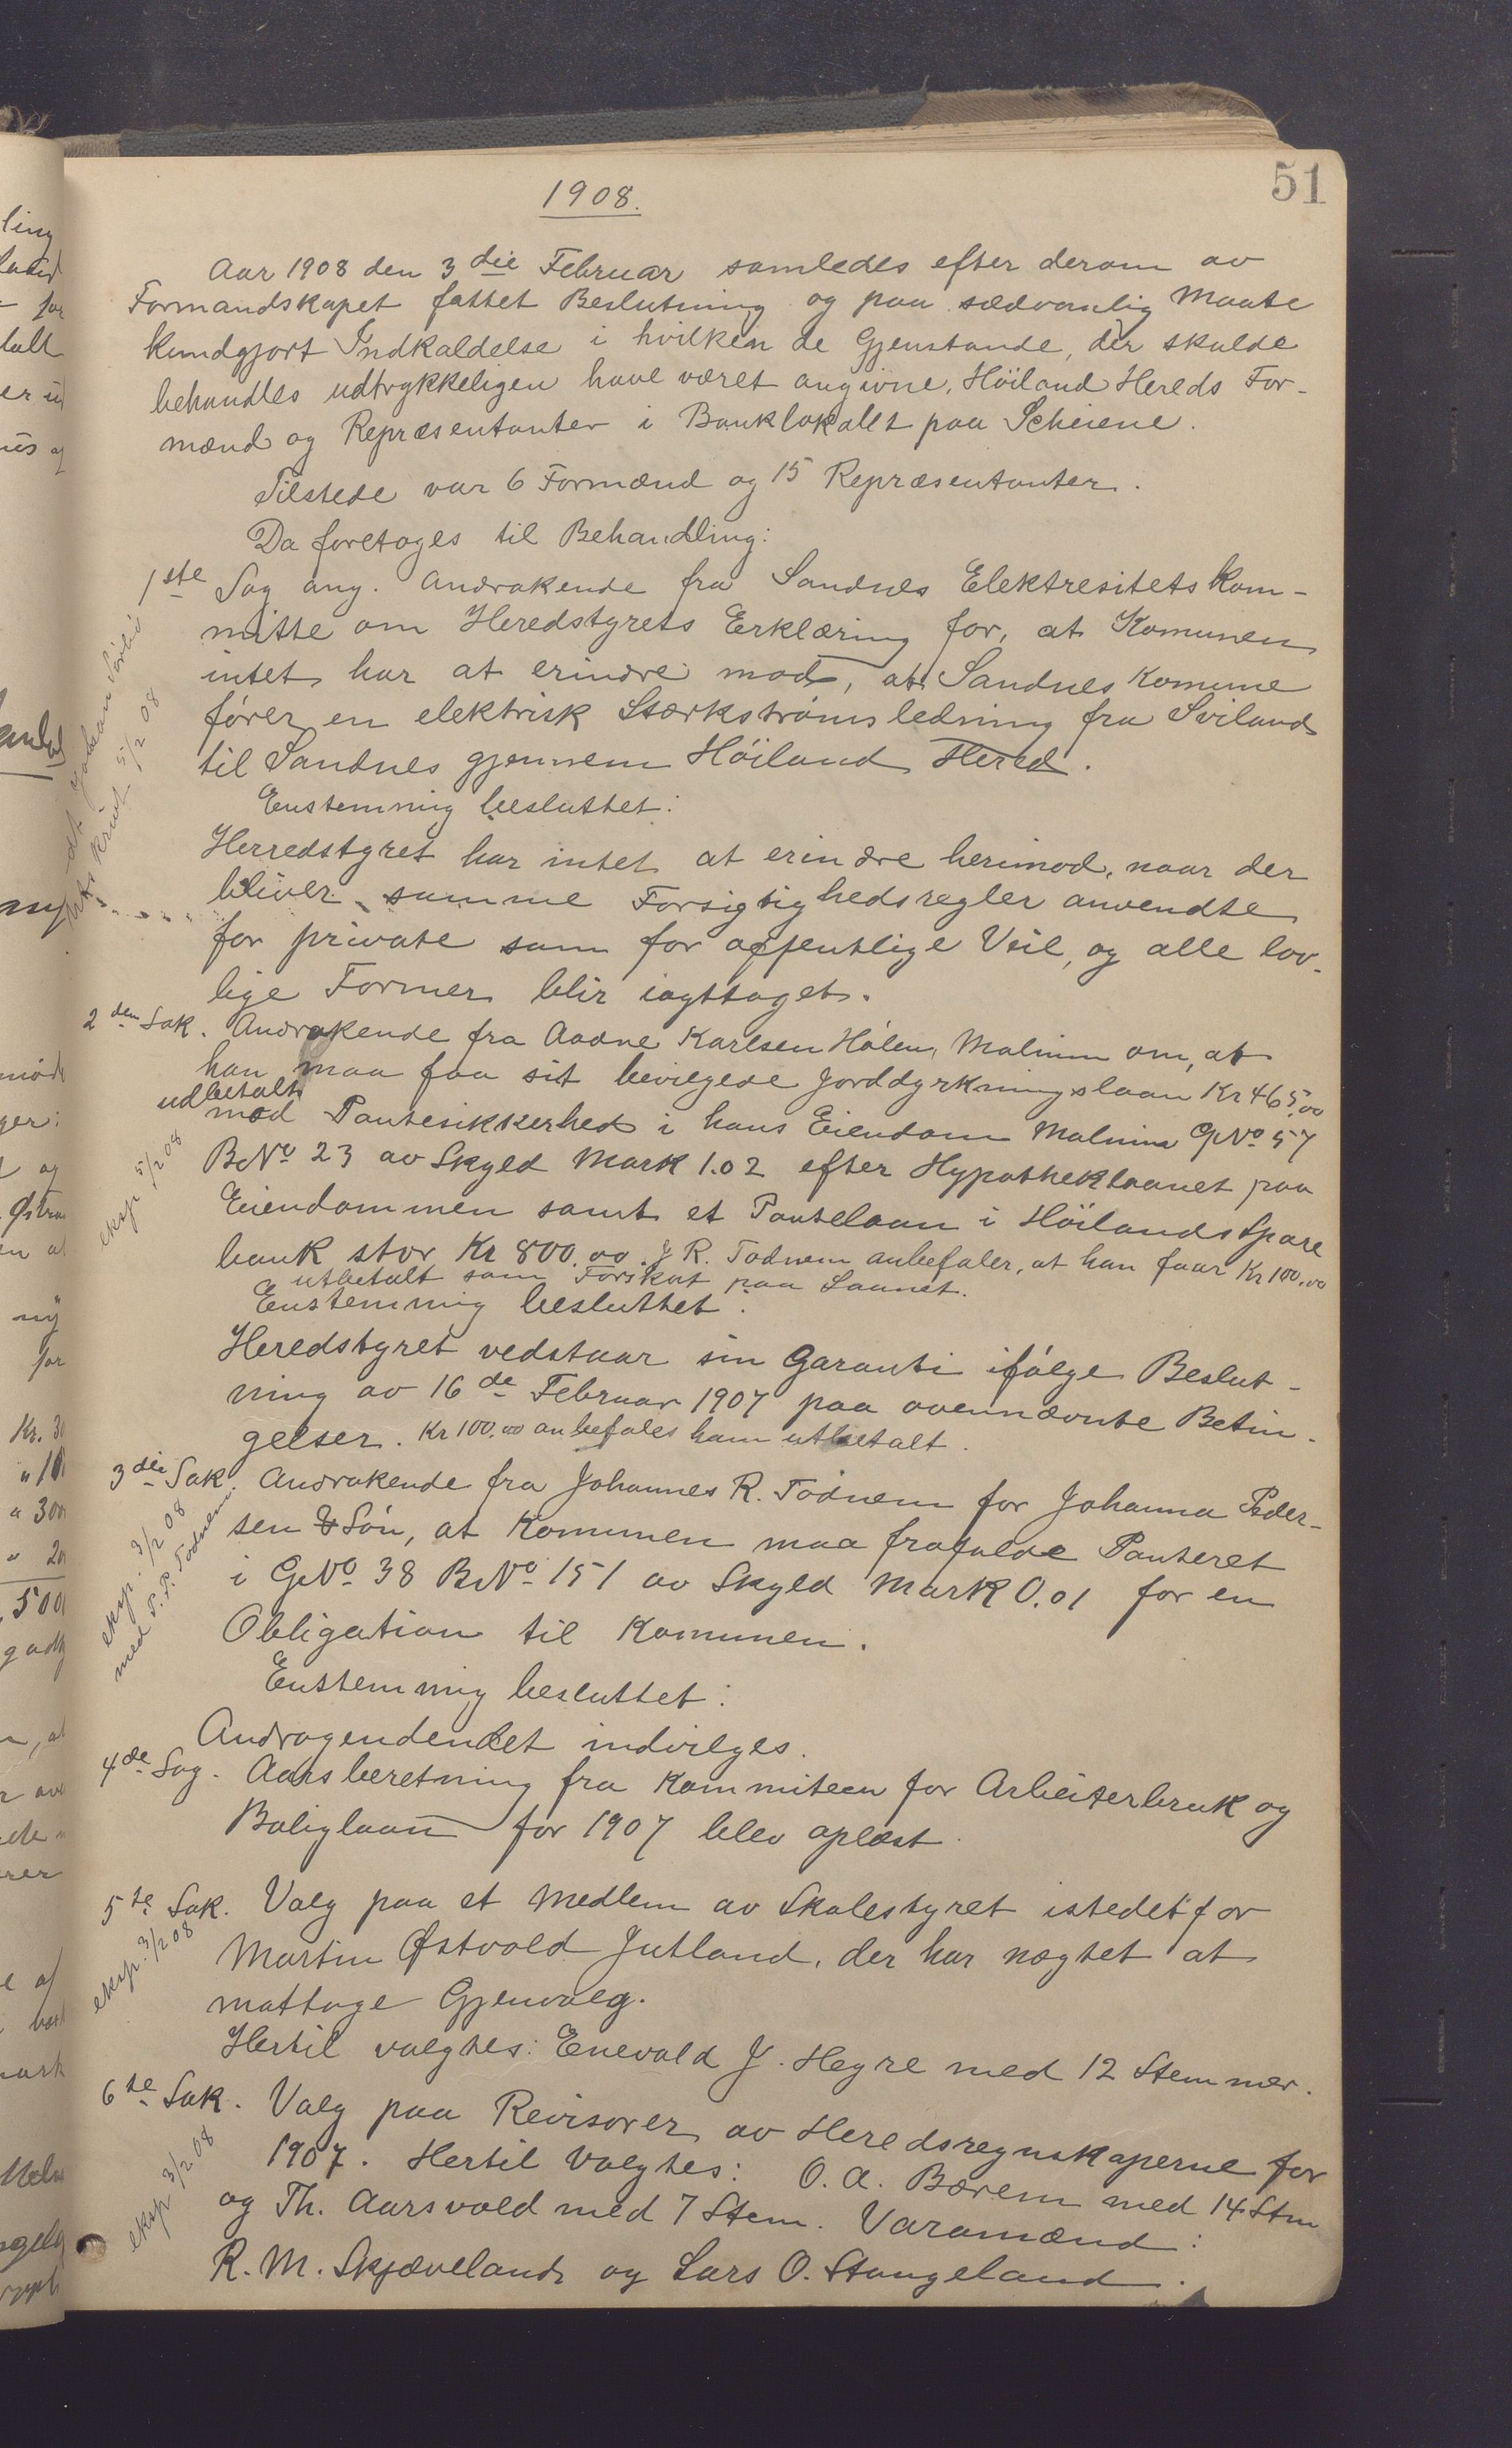 51
1908.
Aar 1908 den 3die Februar samledes efter derom av
Formandskapet fattet Beslutning og paa sædvanlig Maate
kundgjort Indkaldelse i hvilken de Gjenstande, der skulde
behandles udtrykkeligen have været angivne, Höiland Hereds For-
mænd og Repræsentanter i Banklokalet paa Scheiene.
Tilstede var 6 Formænd og 15 Repræsentanter.
Da foretoges til Behandling:
1ste Sag ang. Andrakende fra Sandnes Elektresitetskom-
mitte om Heredstyrets Erklæring for, at Komunen
intet har at erindre mod, at Sandnes Komune
fører en elektrisk Stærkstrømsledning fra Sviland
til Sandnes gjennem Höiland Hered.
Enstemmig besluttet:
Herredstyret har intet at erindre herimod, naar der
bliver samme Forsigtighedsregler anvendte
for private som for offentlige Veil, og alle lov-
lige Former blir iagttaget.
2den Sak. Andrakende fra Aadne Karlsen Hólen, Malmim om, at
han maa faa sit bevilgede Jorddyrkningslaan Kr 465,00
udbetalt
mod Pantesikkerhed i hans Eiendom Malmim GNo 57
BNo 23 av Skyld Mark 1.02 efter Hypotheklaanet paa
Eiendommen samt et Pantelaan i Höilands Spare
bank stor Kr 800.00. J R. Tødnem anbefaler, at han faar Kr 100.00
utbetalt som Forskut paa Laanet.
Enstemmig besluttet:
Heredstyret vedstaar sin Garanti ifølge Beslut-
ning av 16de Februar 1907 paa ovennævnte Betin-
gelser. Kr 100.00 anbefales ham utbetalt.
eksp 5/2 08
3die Sak. Andrakende fra Johannes R. Tødnem for Johanna Peder-
sen & Søn, at Komunen maa frafalde Panteret
i GNo 38 BNo 151 av Skyld Mark 0.01 for en
Obligation til Komunen.
Enstemmig besluttet:
Andragendendet indvilges.
eksp. 3/2 08
med P. P. Tødnem
4de Sag. Aarsberetning fra Kommiteen for Arbeiterbruk og
Boliglaan for 1907 blev oplæst.
5te Sak. Valg paa et Medlem av Skolestyret istedetfor
Martin Østvold Jutland, der har nægtet at
mottage Gjenvalg.
Hertil valgtes: Enevald J. Høyre med 12 Stemmer.
eksp. 3/2 08
6te Sak. Valg paa Revisorer av Heredsregnskaperne for
1907. Hertil Valgtes: O. A. Bærem med 14 Stm
og Th. Aarsvold med 7 Stem. Varamænd:
R. M. Skjæveland og Lars O. Stangeland.
eksp 3/2 08